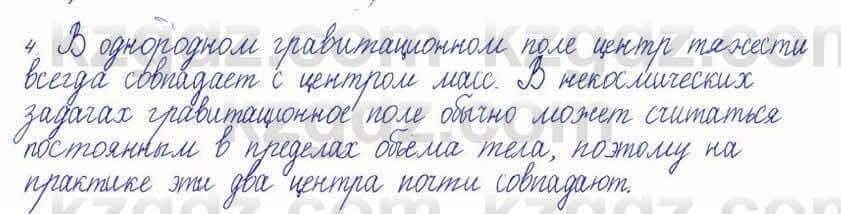 4. В однородном гравитационном поле центр тяжести
всегда совпадает с центром масс. В некосмических
задачах гравитационное поле обычно может считаться
постоянным в пределах объема тела, поэтому на
практике эти два центра почти совпадают.